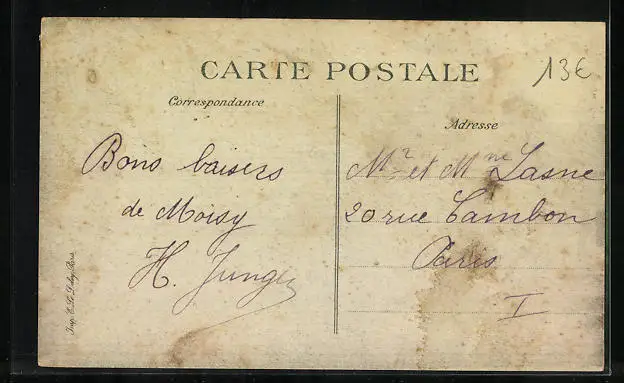 CARTE POSTALE
13€
Correspondance
Adresse
Bons baisers
de Moisy
H. Junges
Mr et Mme Lasne
20 rue Cambon
Paris
I